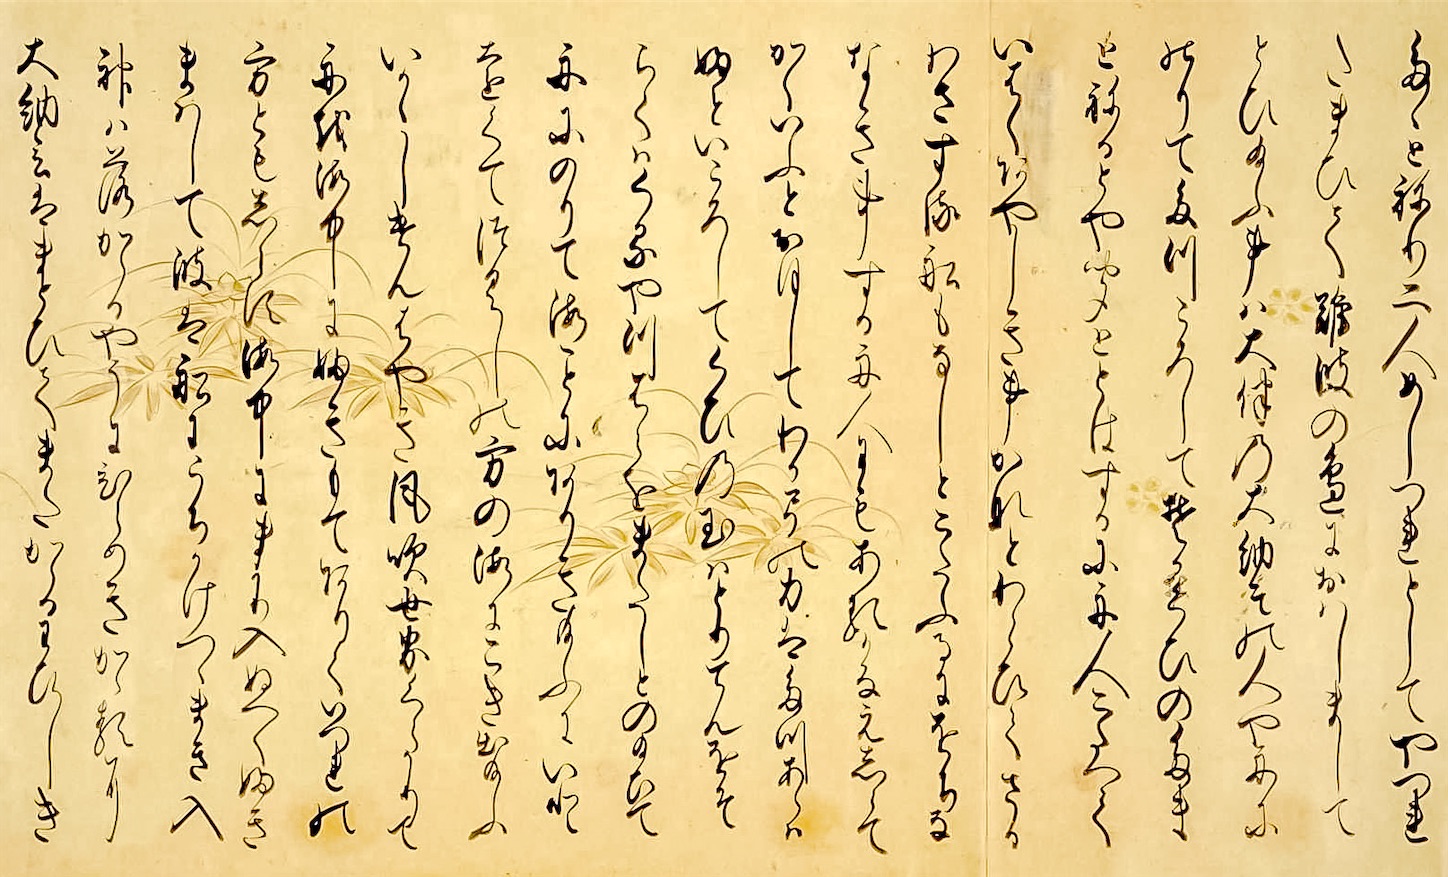 たゝとねり二人めしつれとしてやつれ
たまひて難波の邊におはしまして
とひ給ふ事ハ大伴乃大納言の人やふねに
のりてたつころしてそかくひのたま
とねるとやきくととはするに舟人こたへて
いはくあやしき事かなとわらひてさる
わさする船もなしとこたふるにをちな
なき事する舟人にもあるかなえしらて
かくいふとおほしてわか弓の力はたつあらハ
ふといころしてくひ乃玉ハとりてんをそ
らくハくるやつはらをまたしとのたまひて
舟にのりて海ことにありき給ふにいと
とをくてつくしの方の海にこき出給ふ
いかゝしけんはやき風吹世界くらかりて
舟を海中に吹きもてありくいつれの
方ともしらす海中にまかり入ぬへくふき
まはして波は船にうちかけつゝまき入
神ハ落かゝるやうにひらめきかゝり
大納言はまとひてまたかゝるわひしき